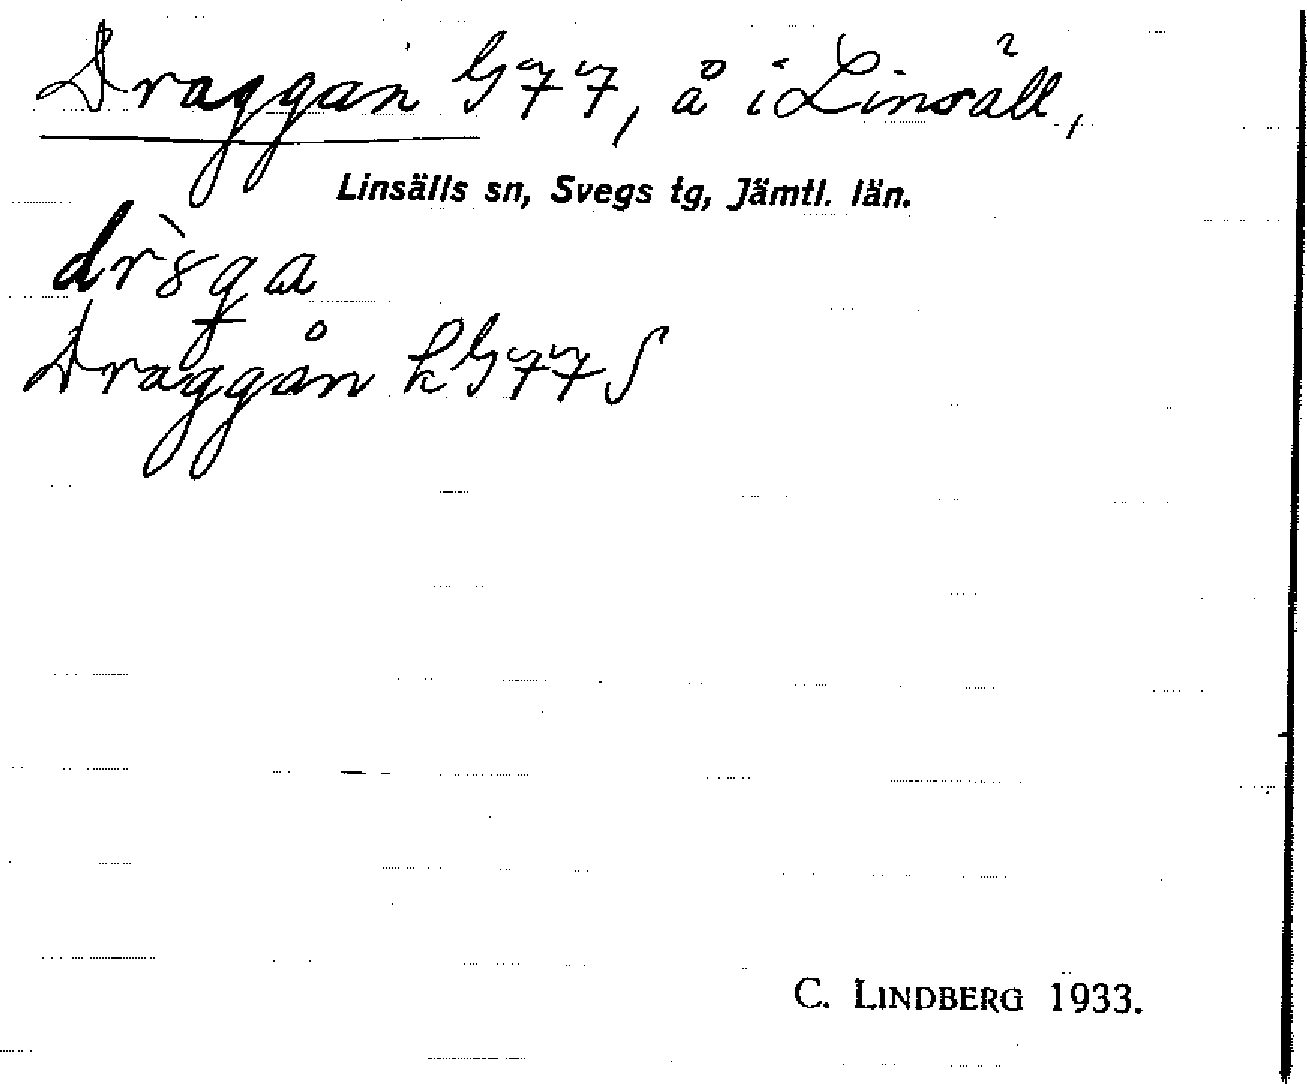 Draggån G77, å i Linsäll,
Linsälls sn, Svegs tg, Jämtl. län.
Draggån kG77S
C. LINDBERG 1933.